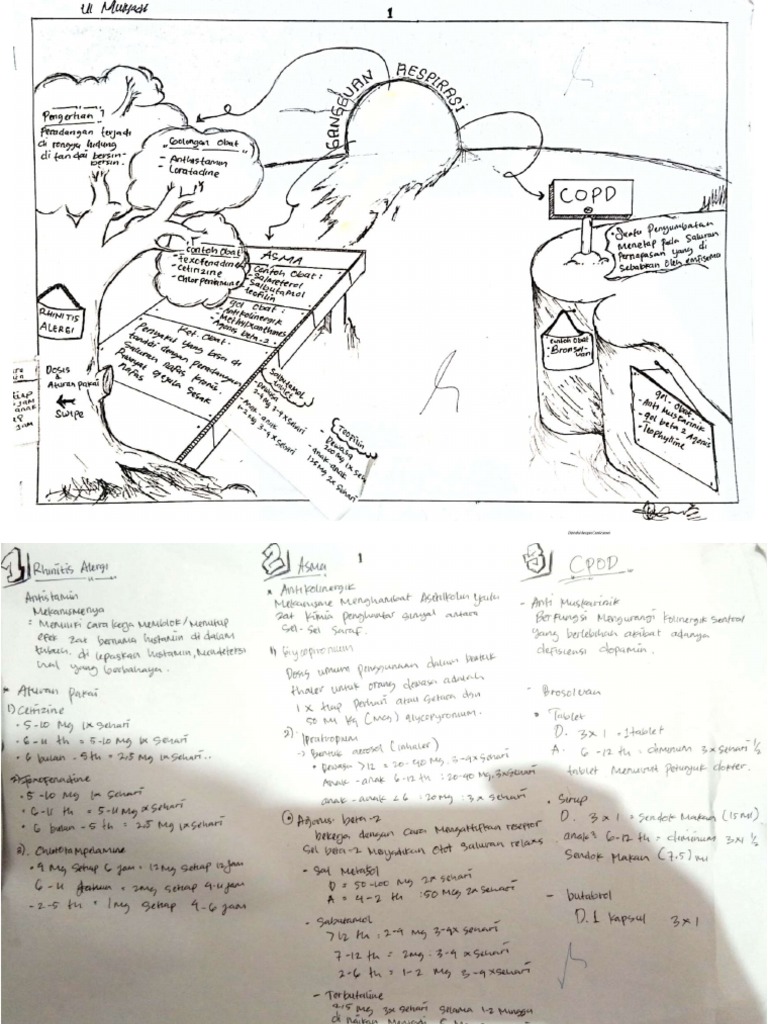 Ul Mukjadi
1
GANGGUAN RESPIRASI
Pengertian
Peradangan terjadi
di rongga hidung
di tandai bersin-
bersin.
Golongan Obat
- Antihistamin
- Loratadine
Contoh Obat
- Fexofenadine
- Cetirizine
- Chlorpenirmine
RHINITIS
ALERGI
Dosis
&
Aturan pakai
Swipe
ASMA
Contoh Obat :
- Salmeterol
- Salbutamol
- Teofilin
gol Obat :
- Antikolinergik
- Methylxanthines
- Agonis beta-2
Ket. Obat
Penyakit yang bisa di
tandai dengan peradangan
Saluran nafas kronis
Riwayat gejala sesak
nafas
Salbutamol
tablet
- Dewasa
2-4 mg 3-4 x sehari
- Anak-anak
1-2 mg 3-4 x sehari
Teofilin
- Dewasa
200 mg 1x sehari
- anak anak
125 mg 2x sehari
COPD
Suatu Penyumbatan
Menetap pada Saluran
Pernapasan yang di
Sebabkan oleh emfisema
Contoh Obat
- Bronsolvan
gol. Obat
- Anti Muskarinik
- gol beta 2 Agonis
- Teophytine
1 Rhinitis Alergi
Antistamin
Mekanismenya
= Memiliki cara kerja Memblok/Menutup
efek zat bernama histamin di dalam
tubuh. di lepaskan histamin, Mendeteksi
hal yang berbahaya.
* Aturan pakai
1) Cetirizine
• 5-10 Mg 1x Sehari
• 6-11 th = 5-10 Mg 1x Sehari
• 6 bulan - 5th = 2.5 Mg 1x Sehari..
2) Fexofenadine
• 5-10 Mg 1x Sehari
• 6-11 th = 5-11 Mg x Sehari
• 6 bulan - 5 th = 2.5 Mg 1x Sehari
• 4 Mg setiap 6 jam = 12 Mg setiap 12 jam
6-11 tahun = 2mg setiap 4-6 jam
- 2-5 th = 1 Mg setiap 4-6 jam
2 Asma
1
* Antikolinergik
Mekanisme Menghambat Asetilkolin yaitu
zat kimia penghantar sinyal antara
sel-sel saraf.
1) Glycopronium
Dosis umum penggunaan dalam bentuk
Inhaler untuk orang dewasa adalah
1 x tiap perhari atau setara dgn
50 M kg (Mcg) glycopyronium.
2) Ipratropium
→ Bentuk aerosol (inhaler)
• Dewasa >12 = 20-40 Mg, 3-4x Sehari
Anak-anak 6-12 th : 20-40 Mg, 3x sehari
anak-anak <6 : 20 Mg : 3x Sehari
Agonis beta-2
bekerja dengan cara Mengaktifkan reseptor
Sel beta-2 Menyebabkan Otot saluran relaks
- Sal Metasol
D = 50-100 Mg 2x sehari
A = 4-2 th : 50 Mcg 2x sehari
- Salbutamol
>12 th : 2-4 Mg 3-4x sehari
7-12 th = 2mg : 3-4 x sehari
2-6 th = 1-2 Mg 3-4 x sehari
- Terbutaline
2,5 Mg 3x sehari selama 1-2 Minggu
3 CPOD
- Anti Muskarinik
Berfungsi Mengurangi kolinergik Sentral
yang berlebihan akibat adanya
defisiensi dopamin.
- Brosolvan
• Tablet
D. 3x1 = 1 tablet
A. 6-12 th = diminum 3x sehari 1/2
tablet Menurut Petunjuk dokter.
• Sirup
D. 3x1 = Sendok Makan (15 ml)
anak2 6-12 th = diminum 3x 1/2
Sendok Makan (7.5) ml
- butabrol
D. 1 kapsul 3x1